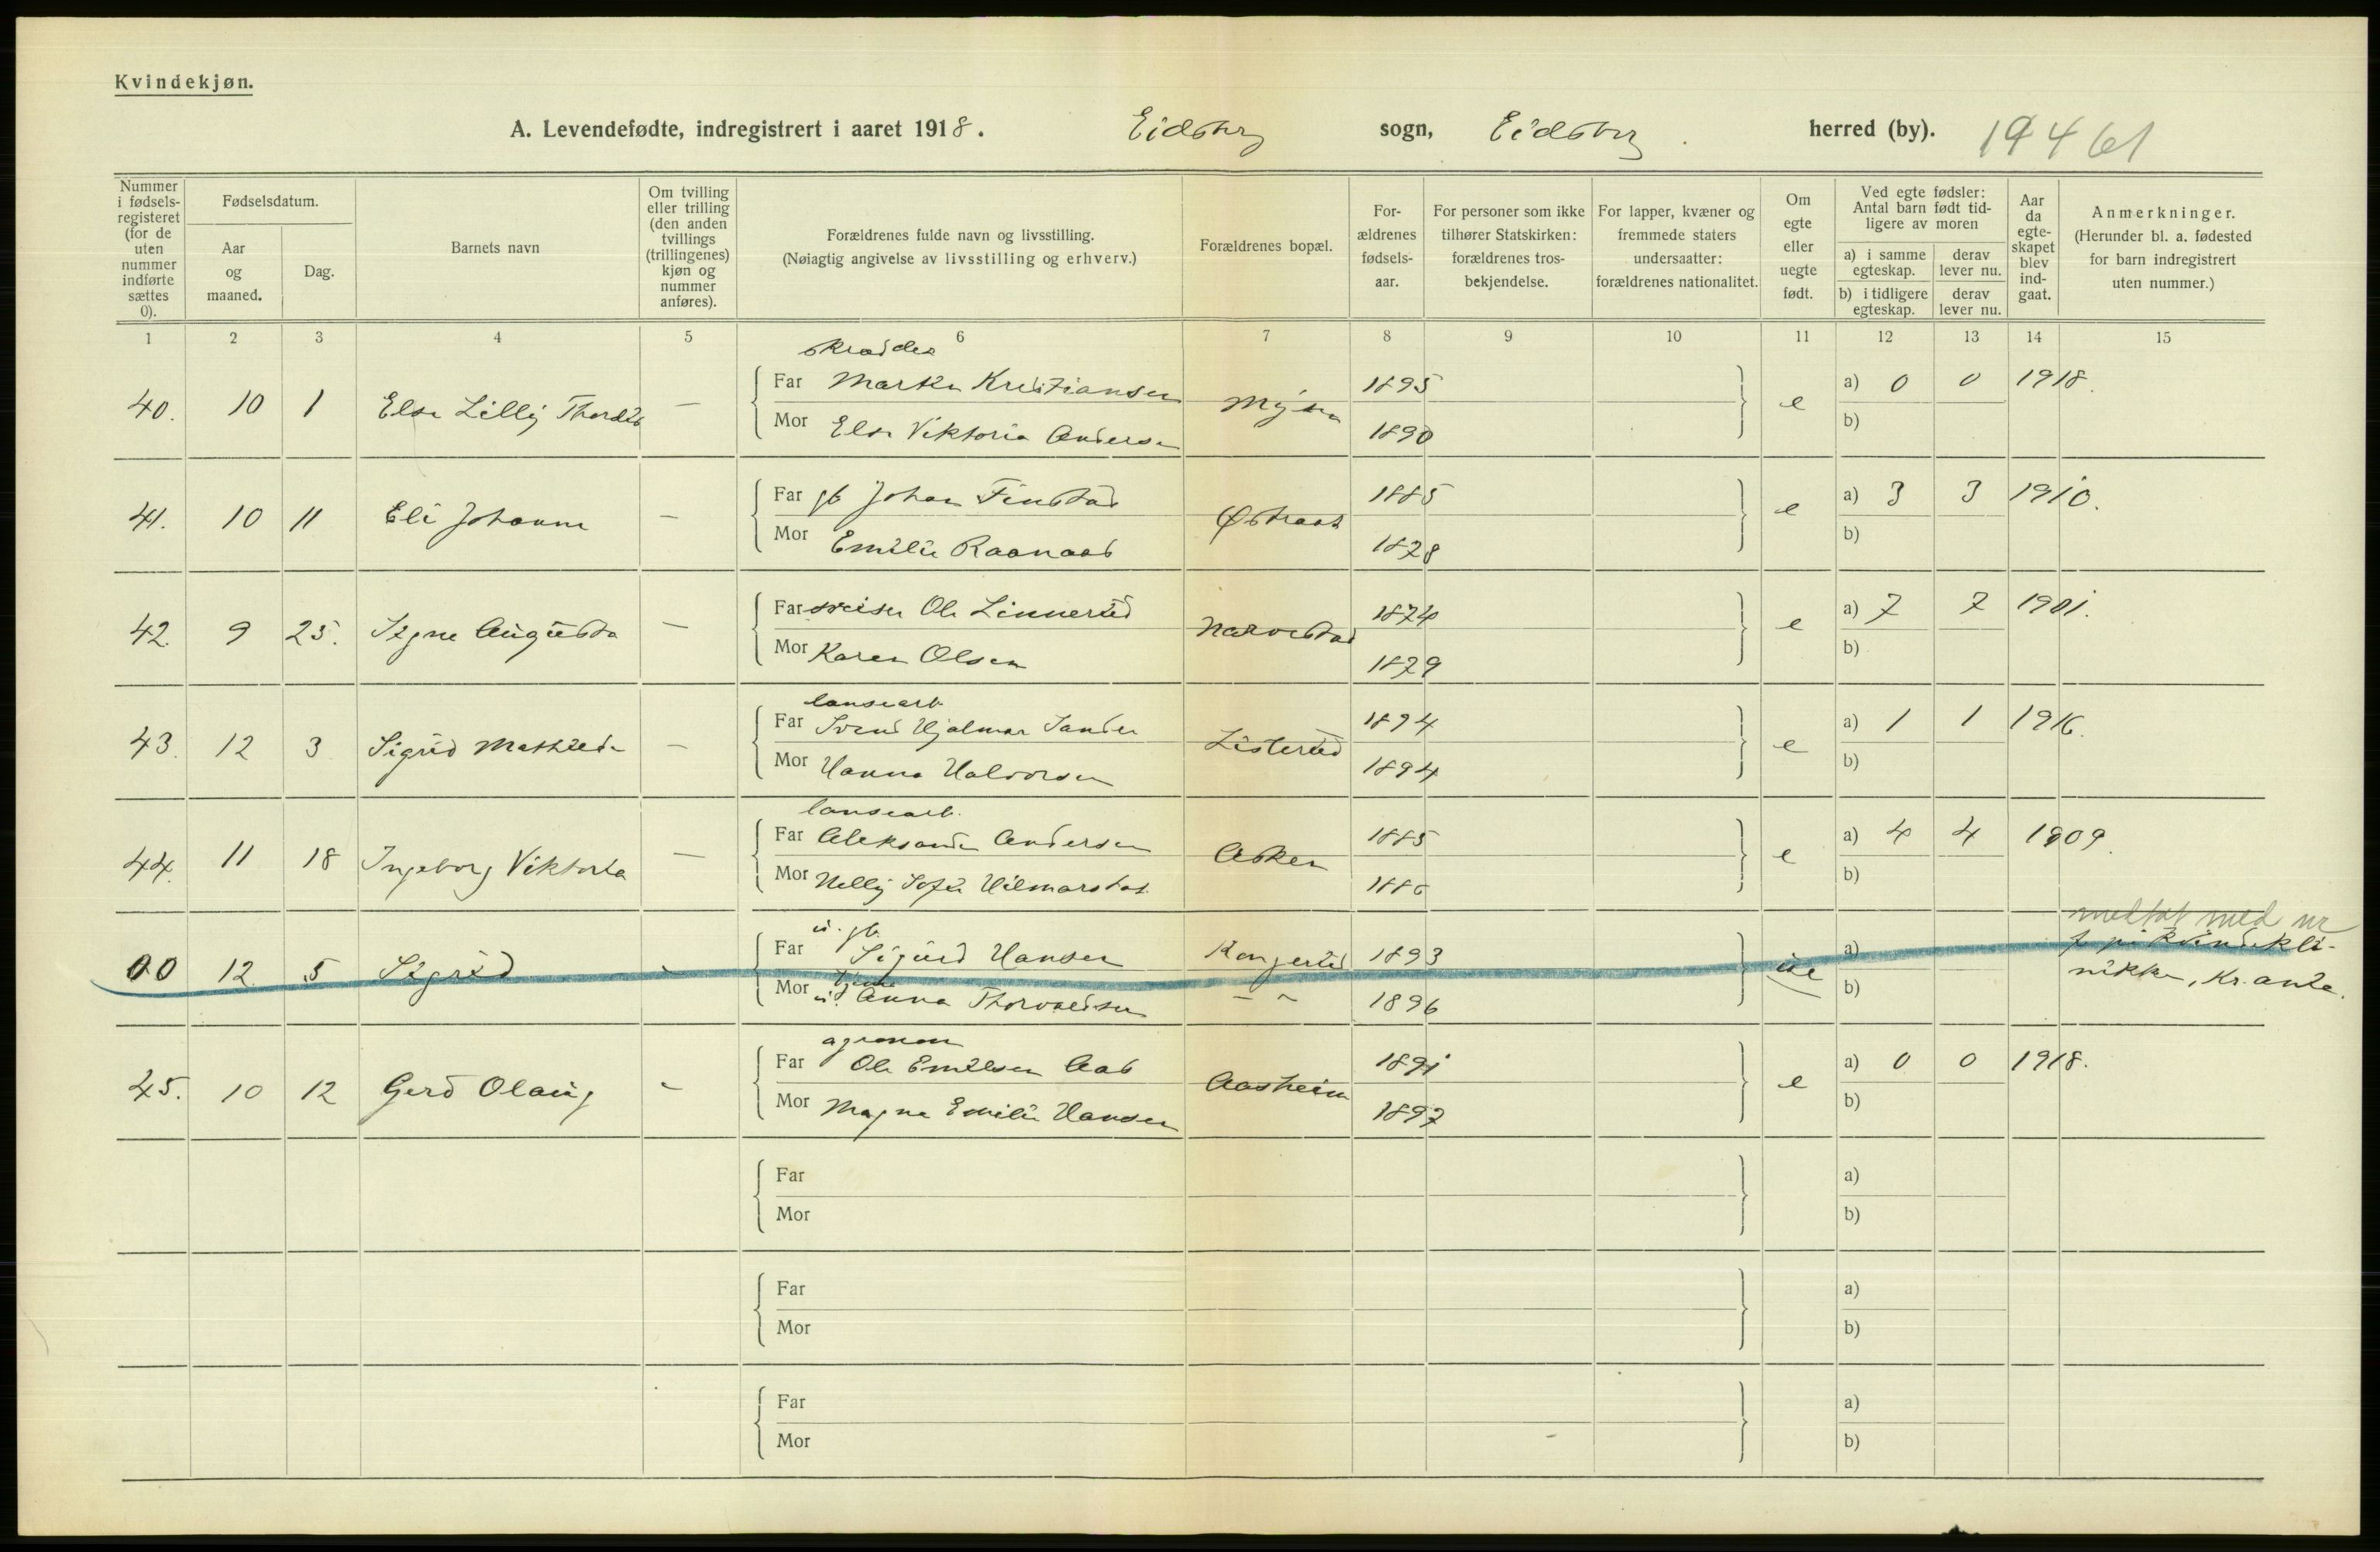 Kvindekjøn.
A. Levendefødte, indregistrert i aaret 1918. Eidsberg sogn, Eidsberg herred (by). 19461
Nummer i fødselsregisteret (for de uten nummer indførte sættes 0).
Fødselsdatum.
Aar og maaned.
Dag.
Barnets navn
Om tvilling eller trilling (den anden tvillings (trillingenes) kjøn og nummer anføres).
Forældrenes fulde navn og livsstilling.
(Nøiagtig angivelse av livsstilling og erhverv.)
Forældrenes bopæl.
Forældrenes fødselsaar.
For personer som ikke tilhører Statskirken: forældrenes trosbekjendelse.
For lapper, kvæner og fremmede staters undersaatter: forældrenes nationalitet.
Om egte eller uegte født.
Ved egte fødsler: Antal barn født tidligere av moren
a) i samme egteskap.
derav lever nu.
b) i tidligere egteskap.
derav lever nu.
Aar da egteskapet blev indgaat.
Anmerkninger.
(Herunder bl. a. fødested for barn indregistrert uten nummer.)
1 2 3 4 5 6 7 8 9 10 11 12 13 14 15
skrædder
40. 10 1 Else Lilly Thordis — Far Martin Kristiansen Mysen 1895 e a) 0 0 1918.
Mor Else Viktoria Andersen 1890 b)
41. 10 11 Eli Johanne — Far gb Johan Finstad 1885 e a) 3 3 1910.
Mor Emilie Raanaas 1878 b)
42. 9 25. Signe Augusta — Far sveiser Ole Linnerud Narvestad 1874 e a) 7 7 1901.
Mor Karen Olsen 1879 b)
landarb.
43. 12 3 Sigrid Mathilde — Far Svend Hjalmar Sander Listerud 1894 e a) 1 1 1916.
Mor Hanna Halvorsen 1894 b)
landarb.
44. 11 18 Ingeborg Viktoria — Far Aleksander Andersen Asken 1885 e a) 4 4 1909.
Mor Nelly Sofie Hilmarstat 1886 b)
u. gb.
00 12 5 Sigrid - Far Sigurd Hansen Kongerud 1893 ue a) medtat med nr
7 på kvindekli-
Mor u. Anna Thorvaldsen — " — 1896 b) nikken, Kr.ania.
agronom
45. 10 12 Gerd Olaug - Far Ole Emilsen Aas Aasheim 1891 e a) 0 0 1918.
Mor Magna Emilie Hansen 1897 b)
Far a)
Mor b)
Far a)
Mor b)
Far a)
Mor b)